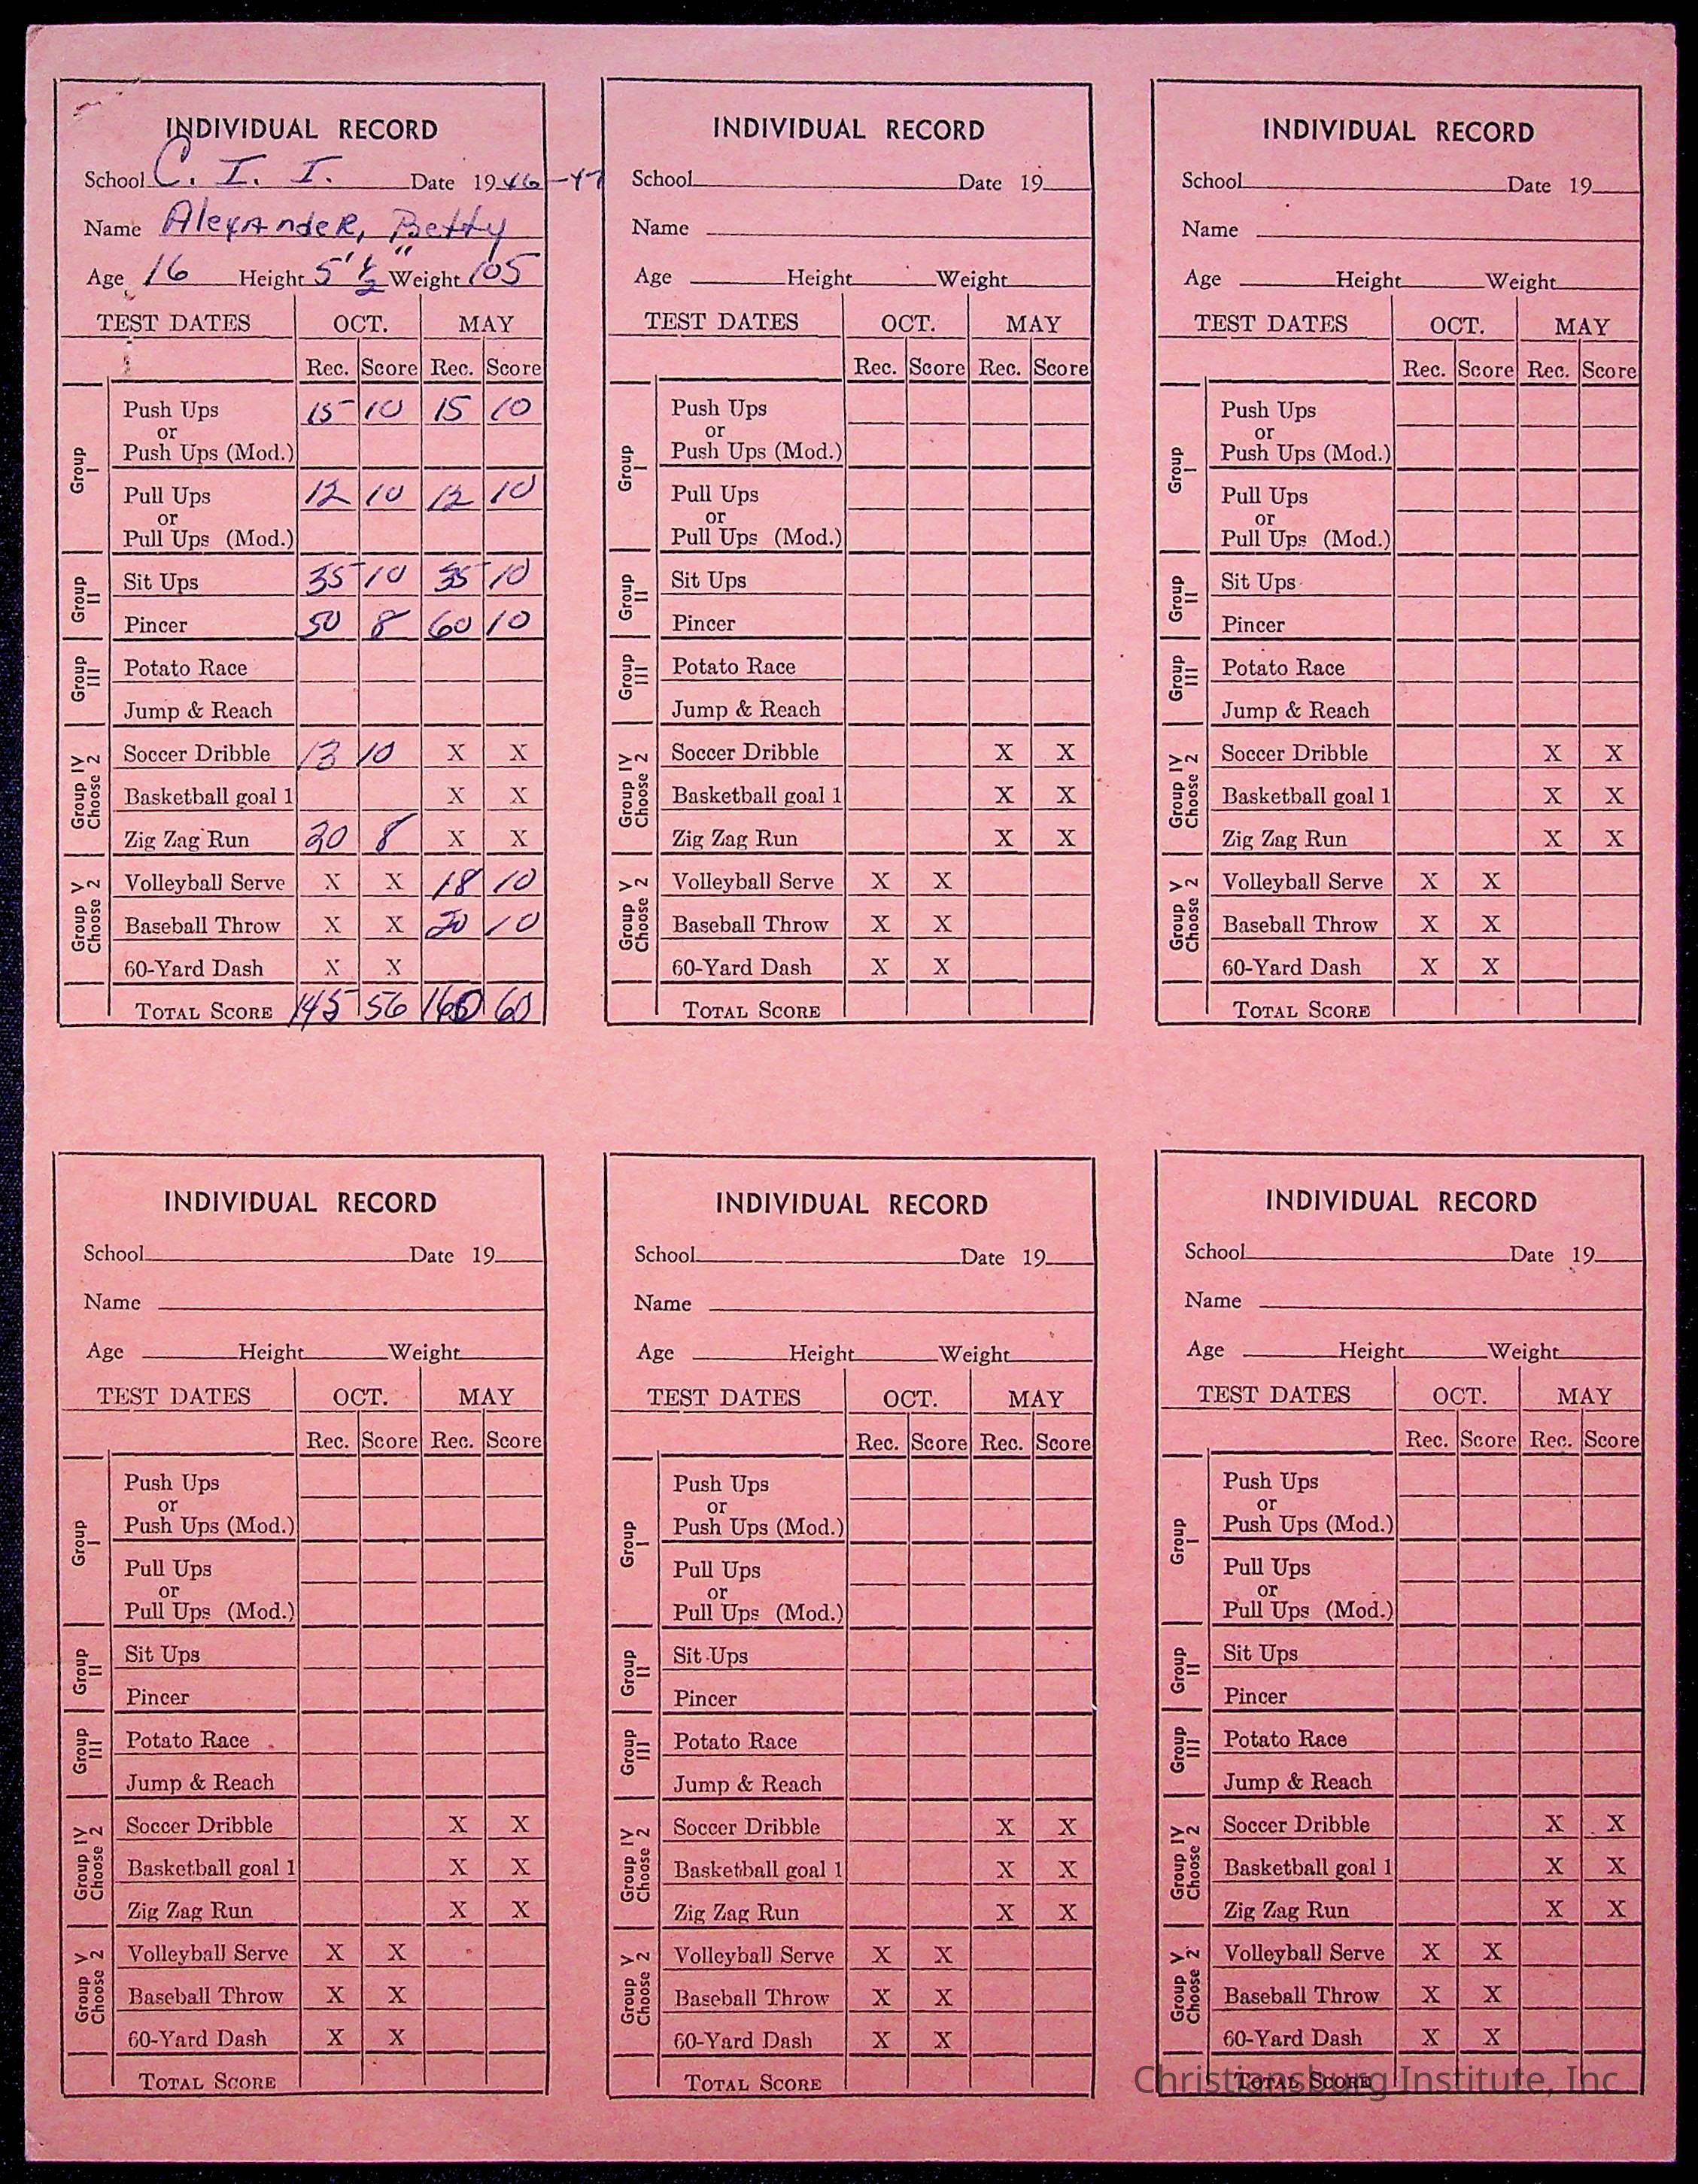 INDIVIDUAL RECORD
School C. I. I. Date 1946-47
Name Alexander, Betty
Age 16 Height 5' ½" Weight 105
TEST DATES OCT. MAY
Rec. Score Rec. Score
Group I
Push Ups 15 10 15 10
or
Push Ups (Mod.)
Pull Ups 12 10 12 10
or
Pull Ups (Mod.)
Group II
Sit Ups 35 10 35 10
Pincer 50 8 60 10
Group III
Potato Race
Jump & Reach
Group IV Choose 2
Soccer Dribble 13 10 X X
Basketball goal 1 X X
Zig Zag Run 20 8 X X
Group V Choose 2
Volleyball Serve X X 18 10
Baseball Throw X X 20 10
60-Yard Dash X X
TOTAL SCORE 145 56 160 60
INDIVIDUAL RECORD
School Date 19
Name
Age Height Weight
TEST DATES OCT. MAY
Rec. Score Rec. Score
Group I
Push Ups
or
Push Ups (Mod.)
Pull Ups
or
Pull Ups (Mod.)
Group II
Sit Ups
Pincer
Group III
Potato Race
Jump & Reach
Group IV Choose 2
Soccer Dribble X X
Basketball goal 1 X X
Zig Zag Run X X
Group V Choose 2
Volleyball Serve X X
Baseball Throw X X
60-Yard Dash X X
TOTAL SCORE
INDIVIDUAL RECORD
School Date 19
Name
Age Height Weight
TEST DATES OCT. MAY
Rec. Score Rec. Score
Group I
Push Ups
or
Push Ups (Mod.)
Pull Ups
or
Pull Ups (Mod.)
Group II
Sit Ups
Pincer
Group III
Potato Race
Jump & Reach
Group IV Choose 2
Soccer Dribble X X
Basketball goal 1 X X
Zig Zag Run X X
Group V Choose 2
Volleyball Serve X X
Baseball Throw X X
60-Yard Dash X X
TOTAL SCORE
INDIVIDUAL RECORD
School Date 19
Name
Age Height Weight
TEST DATES OCT. MAY
Rec. Score Rec. Score
Group I
Push Ups
or
Push Ups (Mod.)
Pull Ups
or
Pull Ups (Mod.)
Group II
Sit Ups
Pincer
Group III
Potato Race
Jump & Reach
Group IV Choose 2
Soccer Dribble X X
Basketball goal 1 X X
Zig Zag Run X X
Group V Choose 2
Volleyball Serve X X
Baseball Throw X X
60-Yard Dash X X
TOTAL SCORE
INDIVIDUAL RECORD
School Date 19
Name
Age Height Weight
TEST DATES OCT. MAY
Rec. Score Rec. Score
Group I
Push Ups
or
Push Ups (Mod.)
Pull Ups
or
Pull Ups (Mod.)
Group II
Sit Ups
Pincer
Group III
Potato Race
Jump & Reach
Group IV Choose 2
Soccer Dribble X X
Basketball goal 1 X X
Zig Zag Run X X
Group V Choose 2
Volleyball Serve X X
Baseball Throw X X
60-Yard Dash X X
TOTAL SCORE
INDIVIDUAL RECORD
School Date 19
Name
Age Height Weight
TEST DATES OCT. MAY
Rec. Score Rec. Score
Group I
Push Ups
or
Push Ups (Mod.)
Pull Ups
or
Pull Ups (Mod.)
Group II
Sit Ups
Pincer
Group III
Potato Race
Jump & Reach
Group IV Choose 2
Soccer Dribble X X
Basketball goal 1 X X
Zig Zag Run X X
Group V Choose 2
Volleyball Serve X X
Baseball Throw X X
60-Yard Dash X X
TOTAL SCORE
Christiansburg Institute, Inc